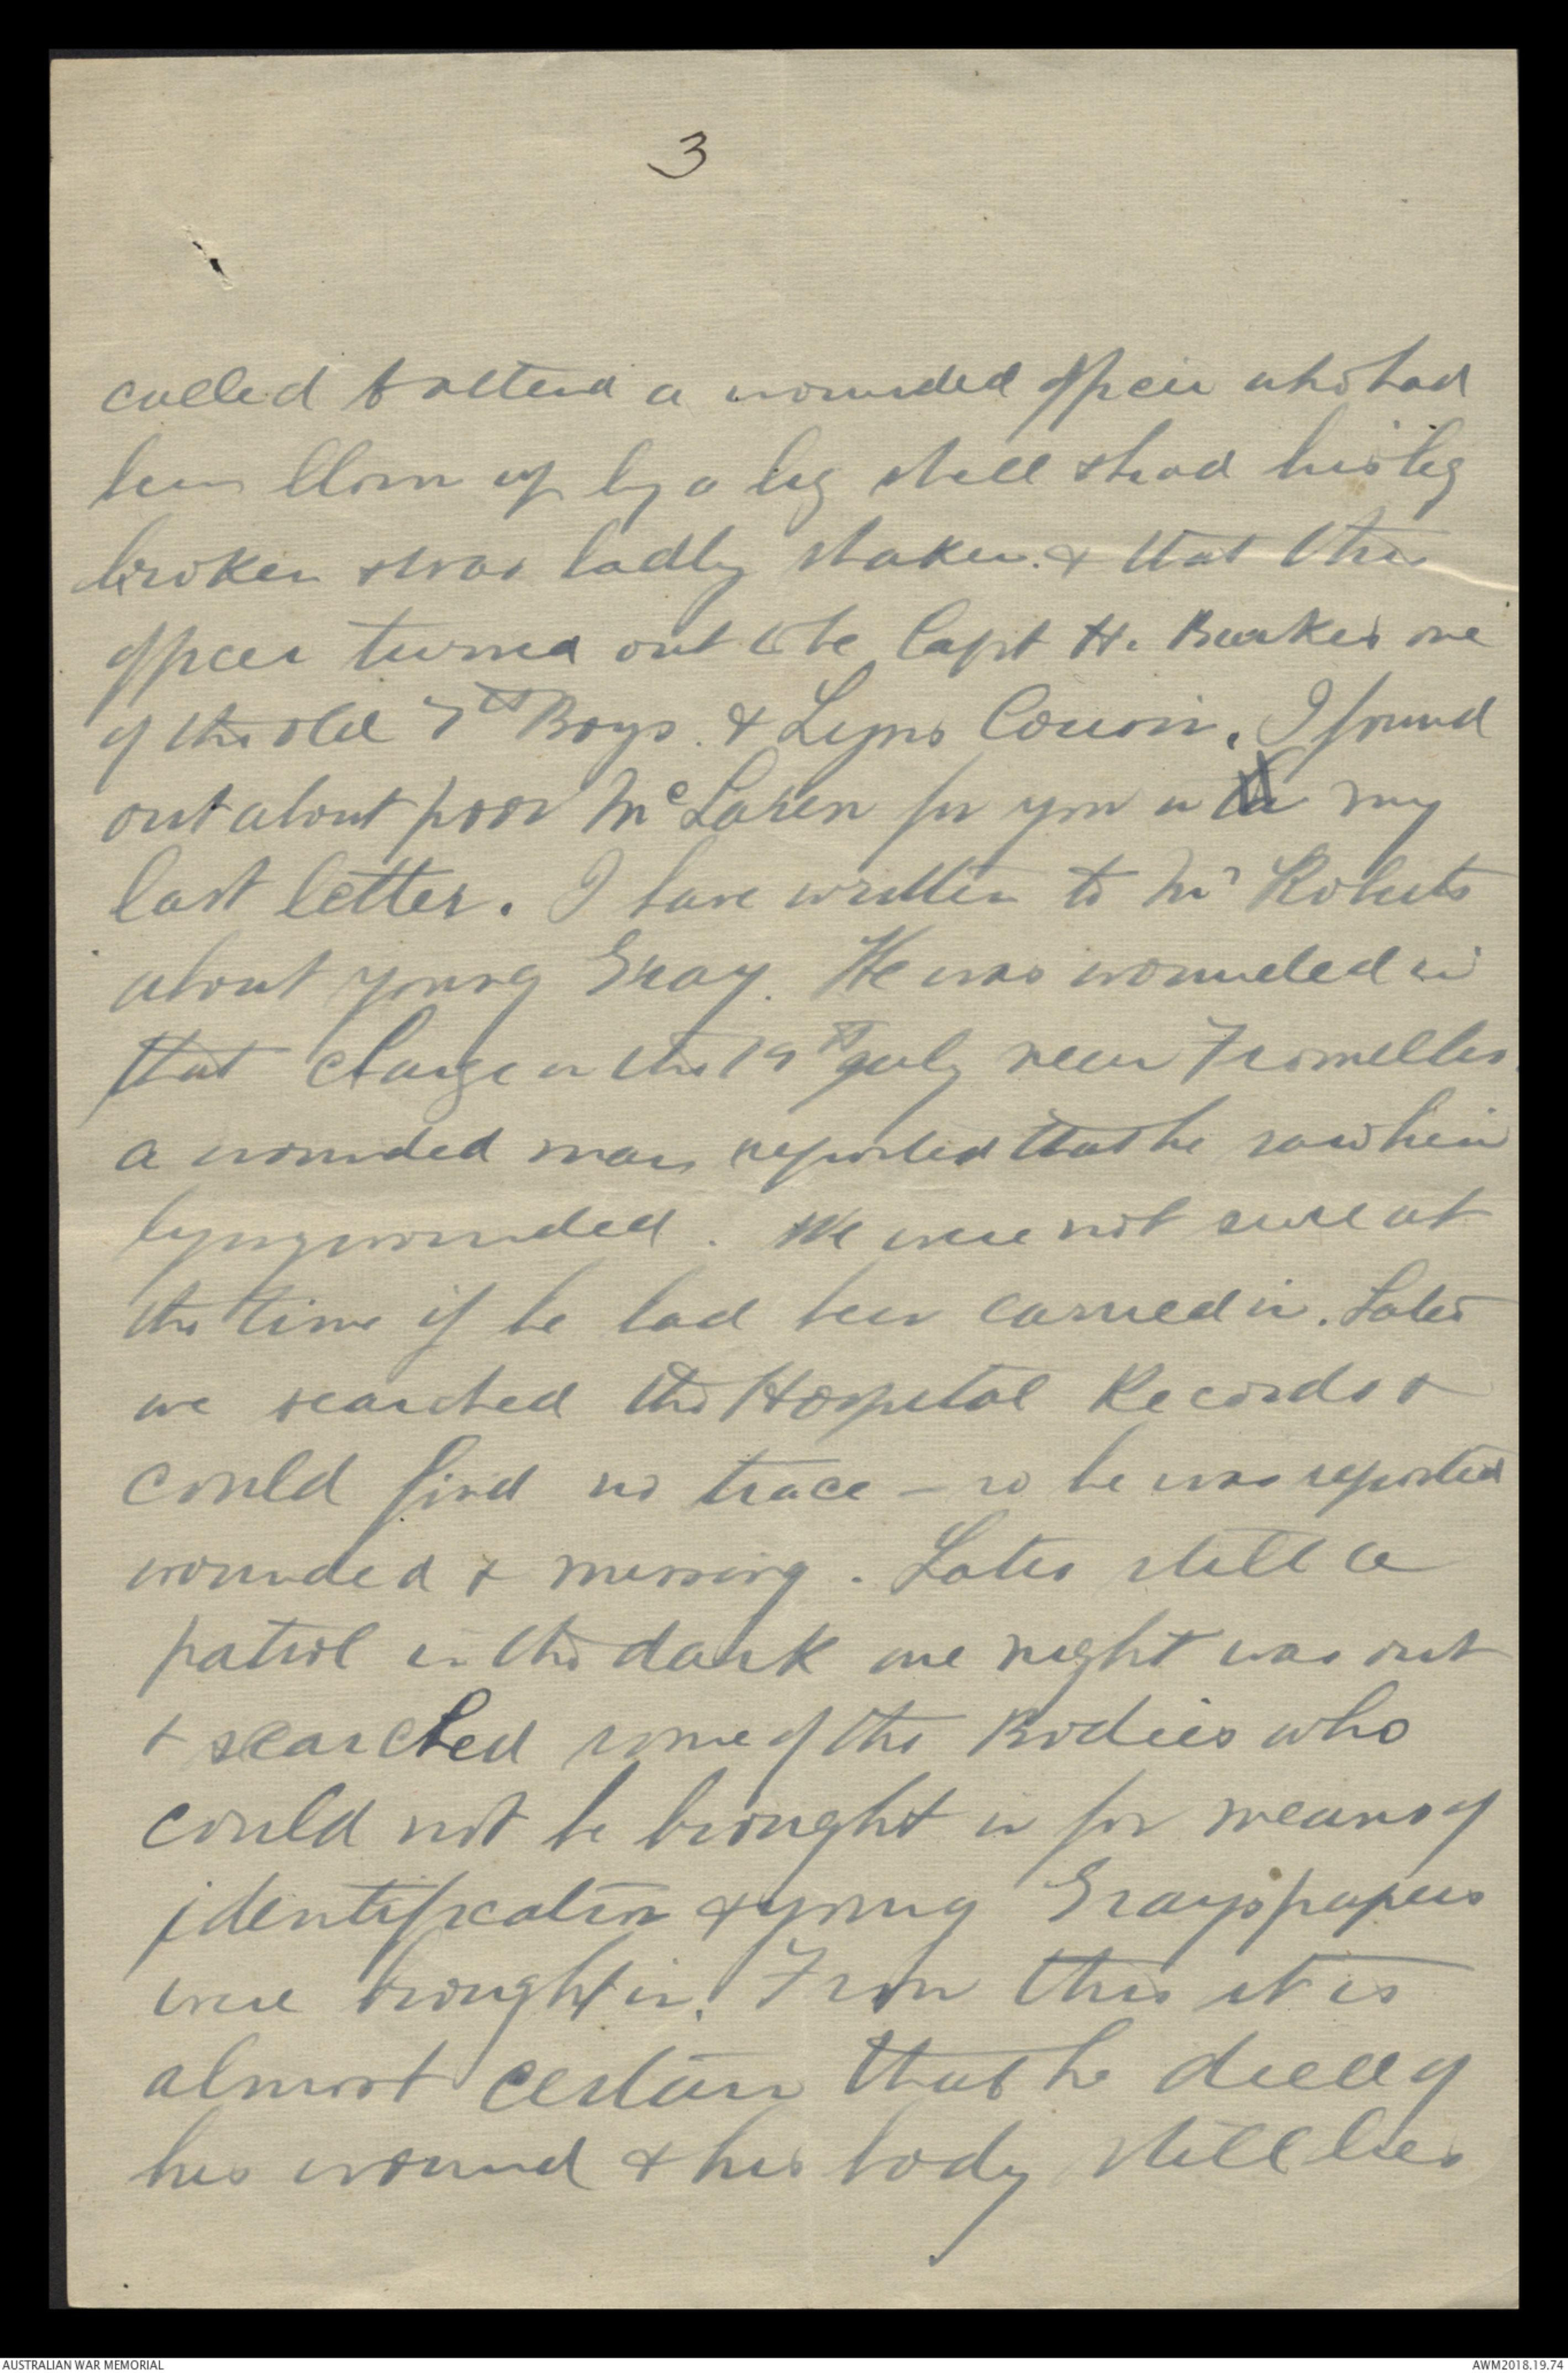 3
called to attend a wounded officer who had
been blown up by a big shell & had his leg
broken & was badly shaken. & that this
officer turned out to be Capt H. Barker one
of the old 7th Boys. & Lyns Cousin. I found
out about poor McLaren for you in my
last letter. I have written to Mr Roberts
about young Gray. He was wounded in
that charge on the 19th July near Fromelles.
a wounded man reported that he saw him
lying wounded. We were not sure at
the time if he had been carried in. Later
we searched the Hospital Records &
could find no trace - so he was reported
wounded & missing. Later still a
patrol in the dark one night was out
& searched some of the Bodies who
could not be brought in for means of
identification & young Grays papers
were brought in. From this it is
almost certain that he died of
his wound & his body still lies
AUSTRALIAN WAR MEMORIAL
AWM2018.19.74